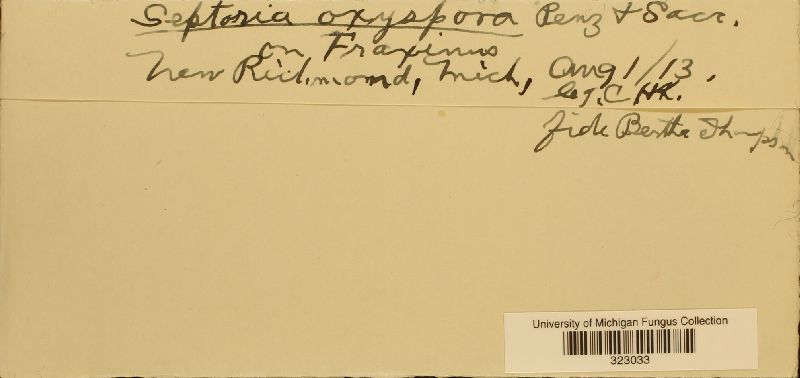 Septoria oxyspora Penz & Sacc.
on Fraxinus
New Richmond, Mich, Aug 1/13.
leg. C.H.K.
fide Bertha Thompson
University of Michigan Fungus Collection
323033